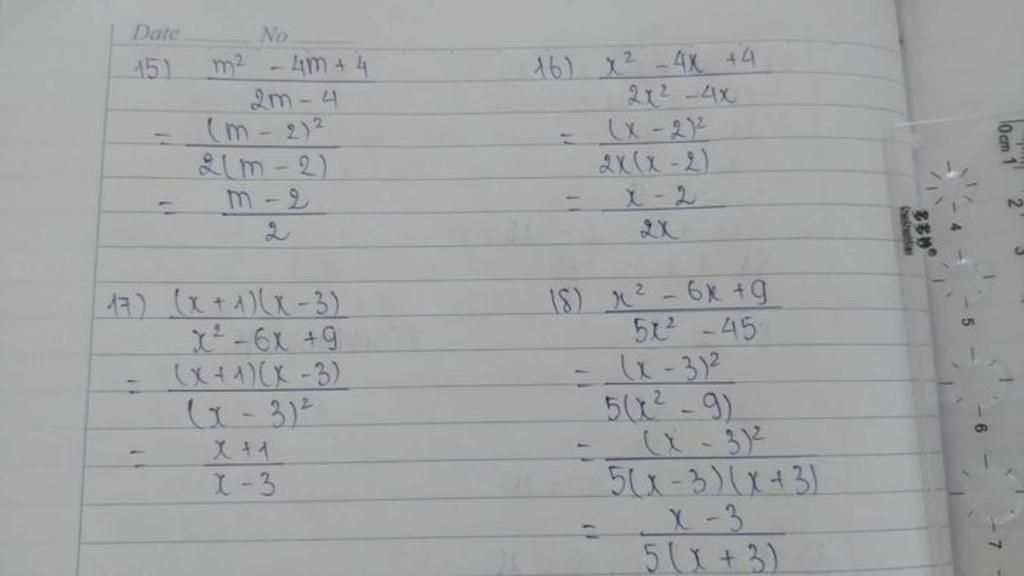 Date No
15) m² - 4m + 4 / 2m - 4
= (m - 2)² / 2(m - 2)
= m - 2 / 2
16) x² - 4x + 4 / 2x² - 4x
= (x - 2)² / 2x(x - 2)
= x - 2 / 2x
17) (x + 1)(x - 3) / x² - 6x + 9
= (x + 1)(x - 3) / (x - 3)²
= x + 1 / x - 3
18) x² - 6x + 9 / 5x² - 45
= (x - 3)² / 5(x² - 9)
= (x - 3)² / 5(x - 3)(x + 3)
= x - 3 / 5(x + 3)
0cm 1 2 3
-4 -5 -6 -7